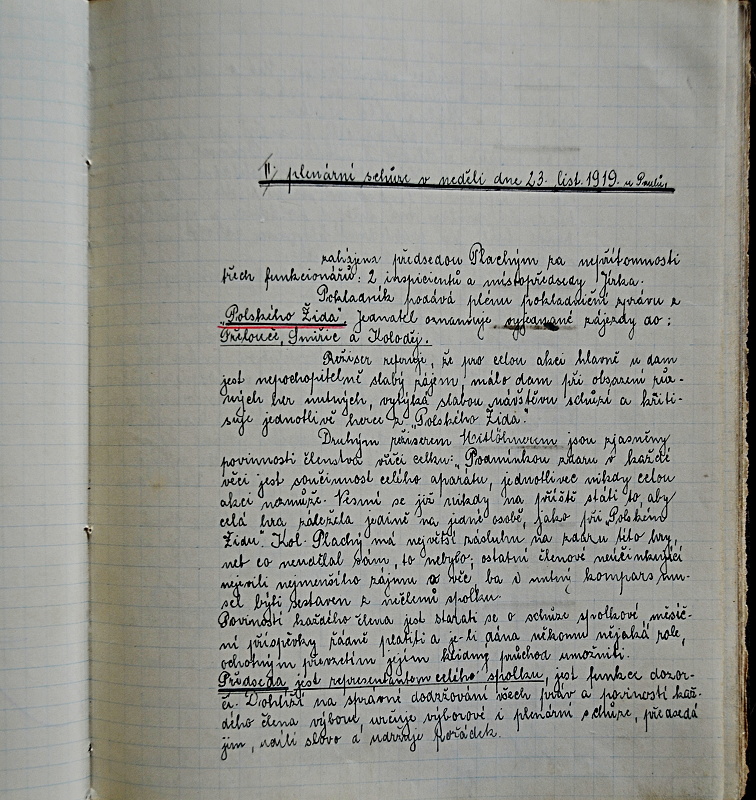 II. plenární schůze v neděli dne 23. list. 1919. u Prulů,
zahájena předsedou Plachým za nepřítomnosti
třech funkcionářů: 2 inspicientů a místopředsedy Jirka.
Pokladník podává plénu pokladniční zprávu z
„Polského Žida". Jednatel oznamuje vyjednané zájezdy do:
Přelouče, Smiřic a Koloděj.
Režiser referuje, že pro celou akci hlavně u dam
jest nepochopitelně slabý zájem, málo dam při obsazení růz-
ných her nutných, vytýká slabou návštěvu schůzí a kriti-
suje jednotlivé herce z „Polského Žida."
Druhým režiserem jsou zjasněny
povinnosti členstva vůči celku: „Podmínkou zdaru v každé
věci jest součinnost celého aparátu, jednotlivec nikdy celou
akci nezmůže. Nesmí se již nikdy na příště státi to, aby
celá hra záležela jedině na jedné osobě, jako při „Polském
Židu". Kol. Plachý má největší zásluhu na zdaru této hry,
neb co neudělal sám, to nebylo; ostatní členové neúčinkující
nejevili nejmenšího zájmu o věc ba i nutný kompars mu-
sel býti sestaven z nečlenů spolku.
Povinností každého člena jest starati se o schůze spolkové, měsíč-
ní příspěvky řádně platiti a je-li dána někomu nějaká role,
ochotným převzetím jejím klidný průchod umožniti.
Předseda jest representantem celého spolku, jest funkce dozor-
čí. Dohlíží na správné dodržování všech práv a povinností kaž-
dého člena výboru, určuje výborové i plenární schůze, předsedá
jim, udílí slovo a udržuje pořádek.